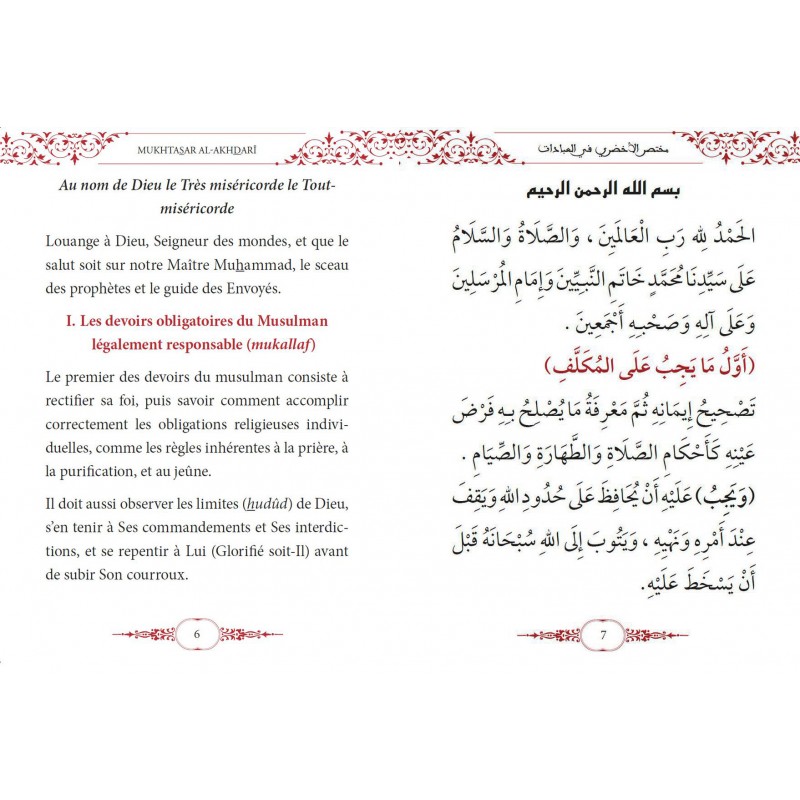 MUKHTASAR AL-AKHDARÎ
Au nom de Dieu le Très miséricorde le Tout-
miséricorde
Louange à Dieu, Seigneur des mondes, et que le
salut soit sur notre Maître Muhammad, le sceau
des prophètes et le guide des Envoyés.
I. Les devoirs obligatoires du Musulman
légalement responsable (mukallaf)
Le premier des devoirs du musulman consiste à
rectifier sa foi, puis savoir comment accomplir
correctement les obligations religieuses indivi-
duelles, comme les règles inhérentes à la prière, à
la purification, et au jeûne.
Il doit aussi observer les limites (hudûd) de Dieu,
s'en tenir à Ses commandements et Ses interdic-
tions, et se repentir à Lui (Glorifié soit-Il) avant
de subir Son courroux.
6
مختصر الأخضري في العبادات
بسم الله الرحمن الرحيم
الحَمْدُ لِلهِ رَبِ الْعَالَمِينَ ، وَالصَّلَاةُ وَالسَّلَامُ
عَلَى سَيِّدِنَا مُحَمَّدٍ خَاتَمِ النَّبِيِّينَ وَإِمَامِ المُرْسَلِينَ
وَعَلَى آلِهِ وَصَحْبِهِ أَجْمَعِينَ .
(أَوَّلُ مَا يَجِبُ عَلَى المُكَلَّفِ)
تَصْحِيحُ إِيمَانِهِ ثُمَّ مَعْرِفَةُ مَا يُصْلِحُ بِهِ فَرْضَ
عَيْنِهِ كَأَحْكَامِ الصَّلَاةِ وَالطَّهَارَةِ وَالصِّيَامِ .
(وَيَجِبُ) عَلَيْهِ أَنْ يُحَافِظَ عَلَى حُدُودِ اللهِ وَيَقِفَ
عِنْدَ أَمْرِهِ وَنَهْيِهِ ، وَيَتُوبَ إِلَى اللهِ سُبْحَانَهُ قَبْلَ
أَنْ يَسْخَطَ عَلَيْهِ.
7